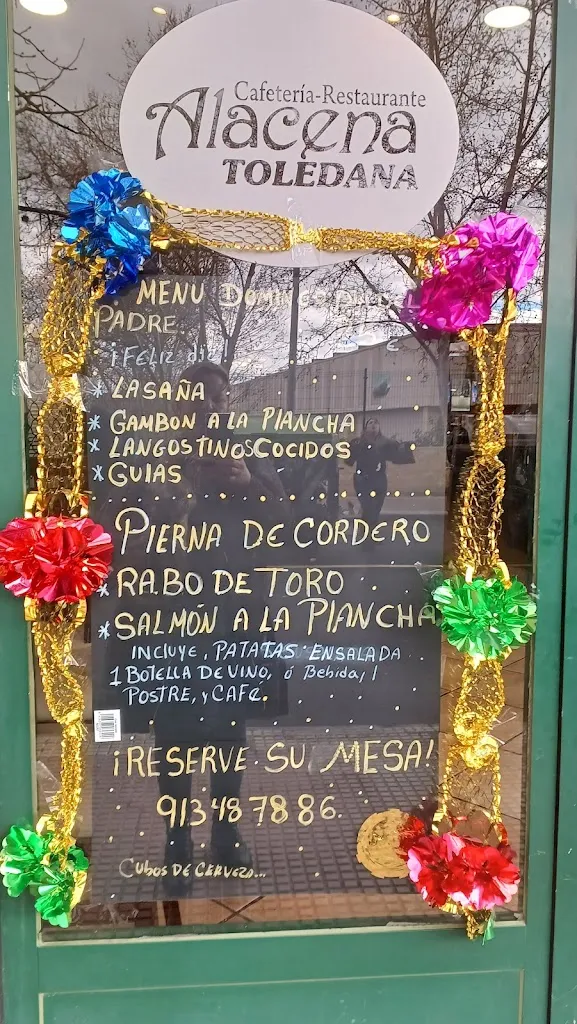 Cafetería-Restaurante
Alacena
TOLEDANA
MENU DOMINGO DIA DEL
PADRE
¡FELIZ día!
* LASAÑA
* GAMBON A LA PLANCHA
* LANGOSTINOS COCIDOS
* GULAS
PIERNA DE CORDERO
* RABO DE TORO
* SALMÓN A LA PLANCHA
INCLUYE, PATATAS ENSALADA
1 BOTELLA DE VINO, ó Bebida, 1
POSTRE, y CAFE.
¡RESERVE SU MESA!
913487886.
CUBOS DE CERVEZA...